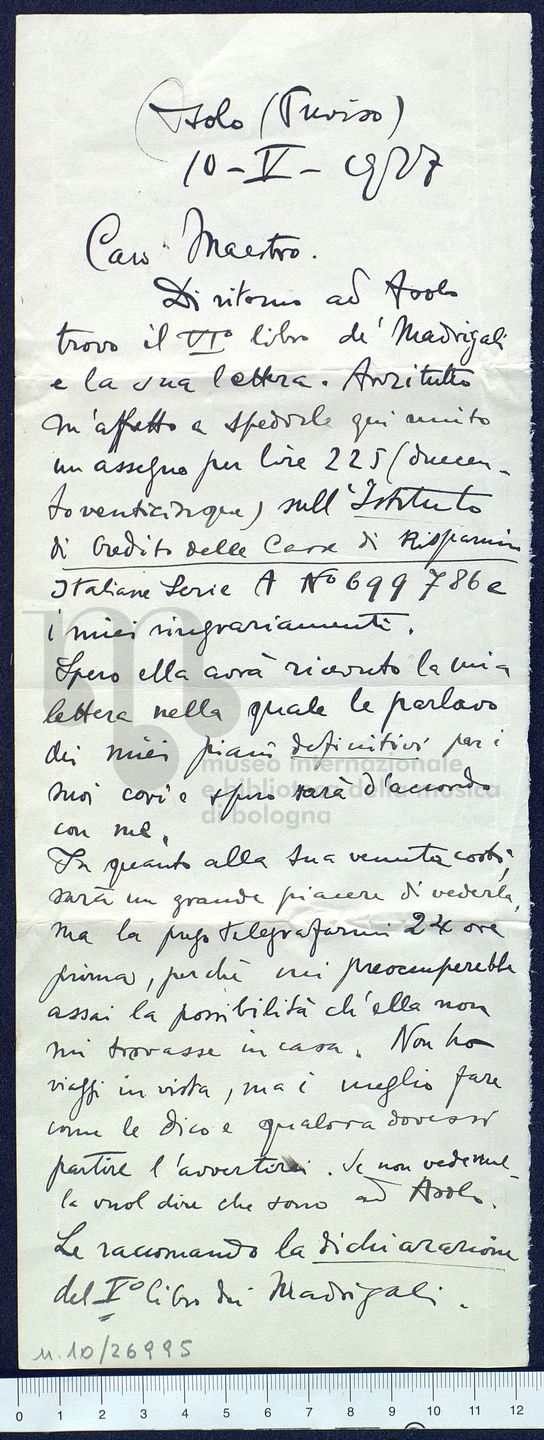 Asolo (Treviso)
10-V-1927
Caro Maestro.
Di ritorno ad Asolo
trovo il VIº libro de' Madrigali
e la sua lettera. Anzitutto
m'affretto a spedirle qui unito
un assegno per lire 225 (duecen-
toventicinque) sull'Istituto
di Credito delle Casse di Risparmio
Italiane Serie A Nº 699786 e
i miei ringraziamenti.
Spero ella avrà ricevuto la mia
lettera nella quale le parlavo
dei miei piani definitivi per i
suoi cori e spero sarà d'accordo
con me.
museo internazionale
e biblioteca della musica
di bologna
In quanto alla sua venuta costì,
sarà un grande piacere di vederla,
ma la prego telegrafarmi 24 ore
prima, perchè mi preoccuperebbe
assai la possibilità ch'ella non
mi trovasse in casa. Non ho
viaggi in vista, ma è meglio fare
come le dico e qualora dovessi
partire l'avvertirei. Se non
la vuol dire che sono ad Asolo.
Le raccomando la dichiarazione
del Iº libro dei Madrigali.
n.10/26995
0 1 2 3 4 5 6 7 8 9 10 11 12